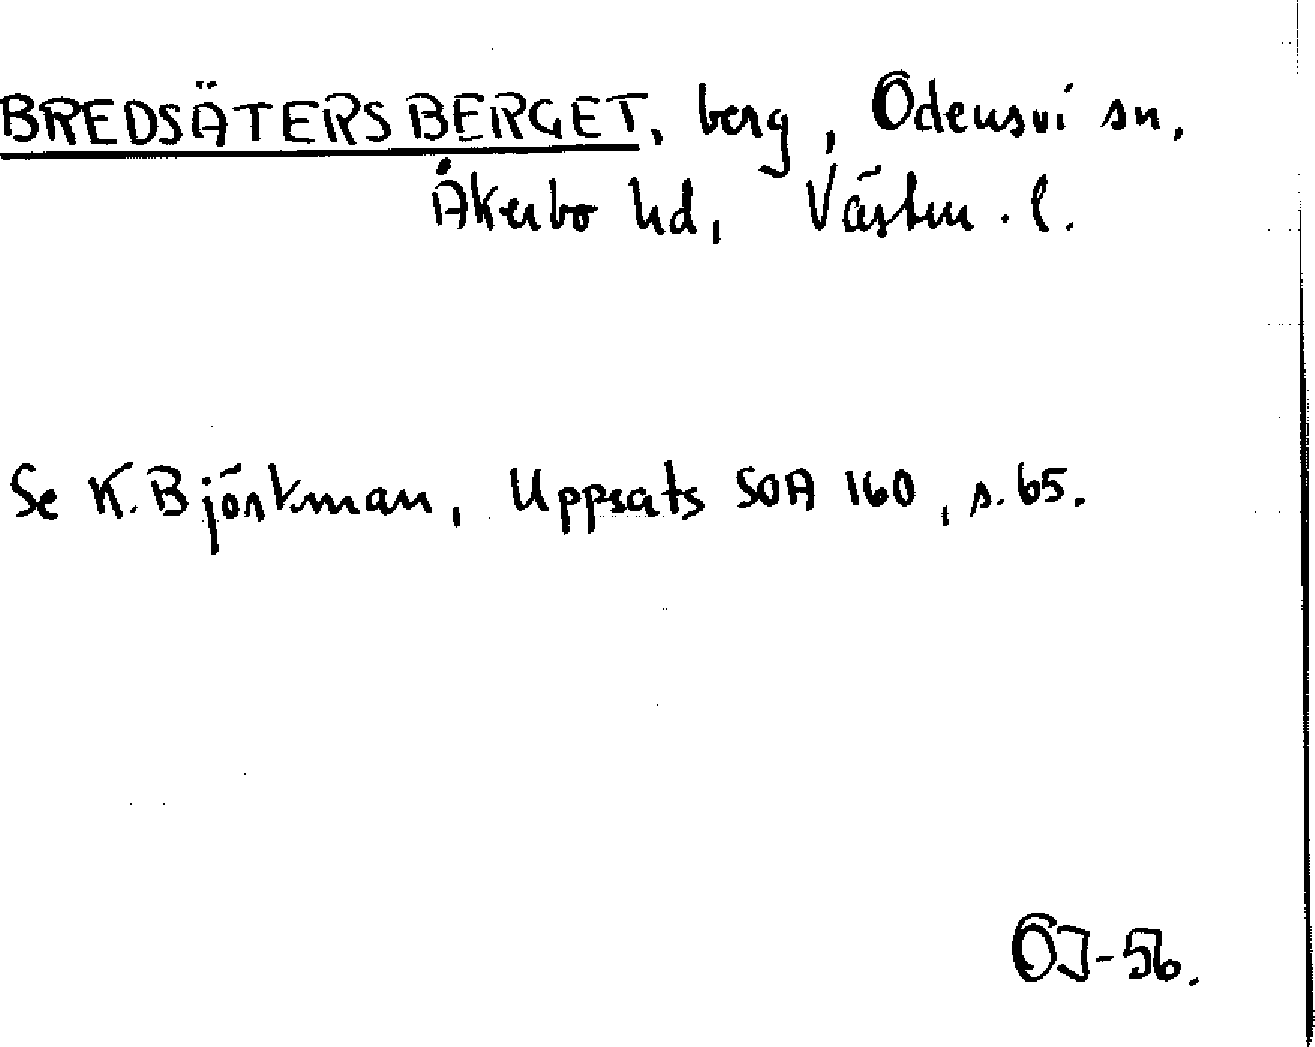 BREDSÄTERSBERGET, berg, Odensvi sn,
Åkerbo hd, Västm. l.
Se K. Björkman, Uppsats SOA 160, s. 65.
OJ-56.